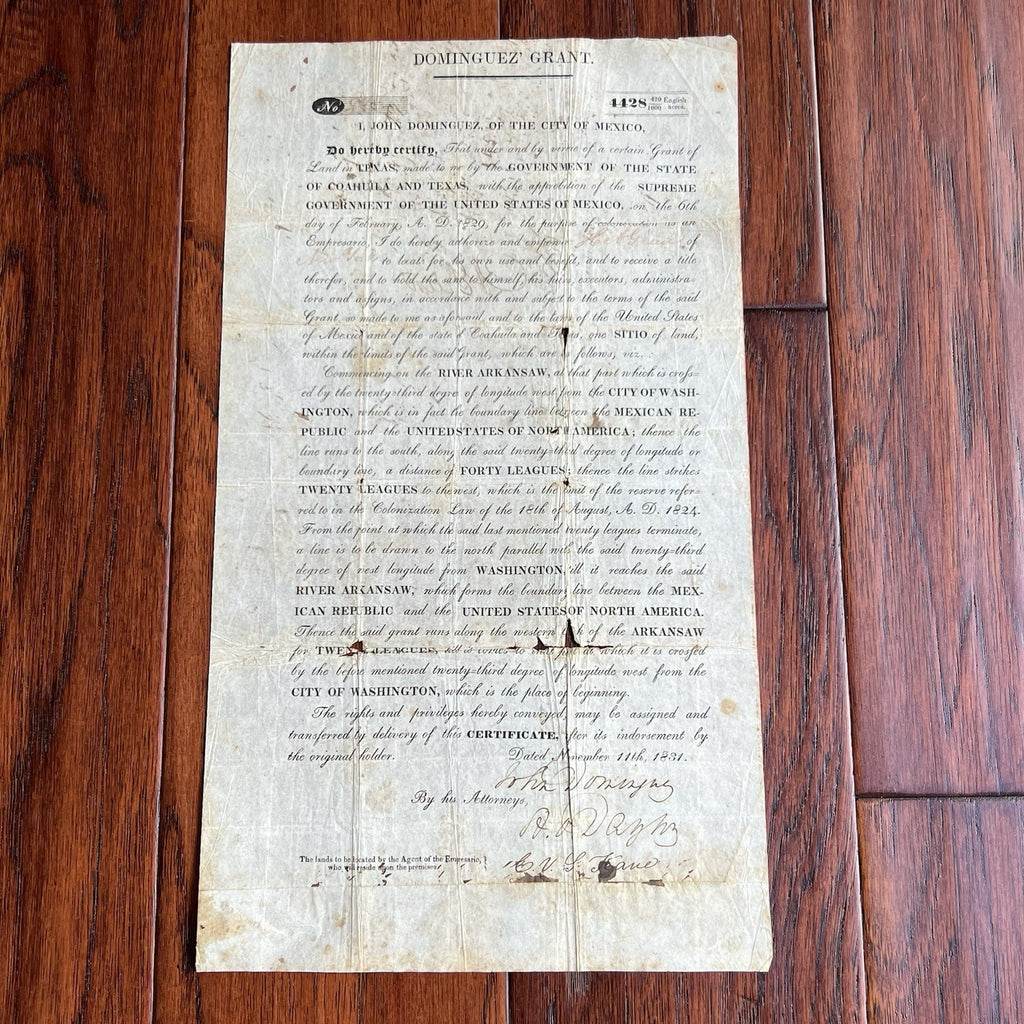 DOMINGUEZ' GRANT.
No
4428 419/1000 English acres.
I, JOHN DOMINGUEZ, OF THE CITY OF MEXICO,
Do hereby certify, That under and by virtue of a certain Grant of
Land in TEXAS, made to me by the GOVERNMENT OF THE STATE
OF COAHUILA AND TEXAS, with the approbation of the SUPREME
GOVERNMENT OF THE UNITED STATES OF MEXICO, on the 6th
day of February, A. D. 1829, for the purpose of colonization as an
Empresario, I do hereby authorize and empower of
New York to locate for his own use and benefit, and to receive a title
therefor, and to hold the same to himself, his heirs, executors, administra=
tors and assigns, in accordance with and subject to the terms of the said
Grant, so made to me as aforesaid, and to the laws of the United States
of Mexico and of the state of Coahuila and Texas, one SITIO of land,
within the limits of the said Grant, which are as follows, viz..
Commencing on the RIVER ARKANSAW, at that part which is cross=
ed by the twenty=third degree of longitude west from the CITY OF WASH-
INGTON, which is in fact the boundary line between the MEXICAN RE-
PUBLIC and the UNITED STATES OF NORTH AMERICA; thence the
line runs to the south, along the said twenty=third degree of longitude or
boundary line, a distance of FORTY LEAGUES; thence the line strikes
TWENTY LEAGUES to the west, which is the limit of the reserve refer=
red to in the Colonization Law of the 18th of August, A. D. 1824.
From the point at which the said last mentioned twenty leagues terminate,
a line is to be drawn to the north parallel with the said twenty=third
degree of west longitude from WASHINGTON, till it reaches the said
RIVER ARKANSAW, which forms the boundary line between the MEX-
ICAN REPUBLIC and the UNITED STATES OF NORTH AMERICA.
Thence the said grant runs along the western bank of the ARKANSAW
for TWENTY LEAGUES, till it comes to that part at which it is crossed
by the before mentioned twenty=third degree of longitude west from the
CITY OF WASHINGTON, which is the place of beginning.
The rights and privileges hereby conveyed, may be assigned and
transferred by delivery of this CERTIFICATE, after its indorsement by
the original holder. Dated, November 11th, 1831.
John Dominguez
By his Attorneys,
The lands to be located by the Agent of the Empresario,
who will reside upon the premises.